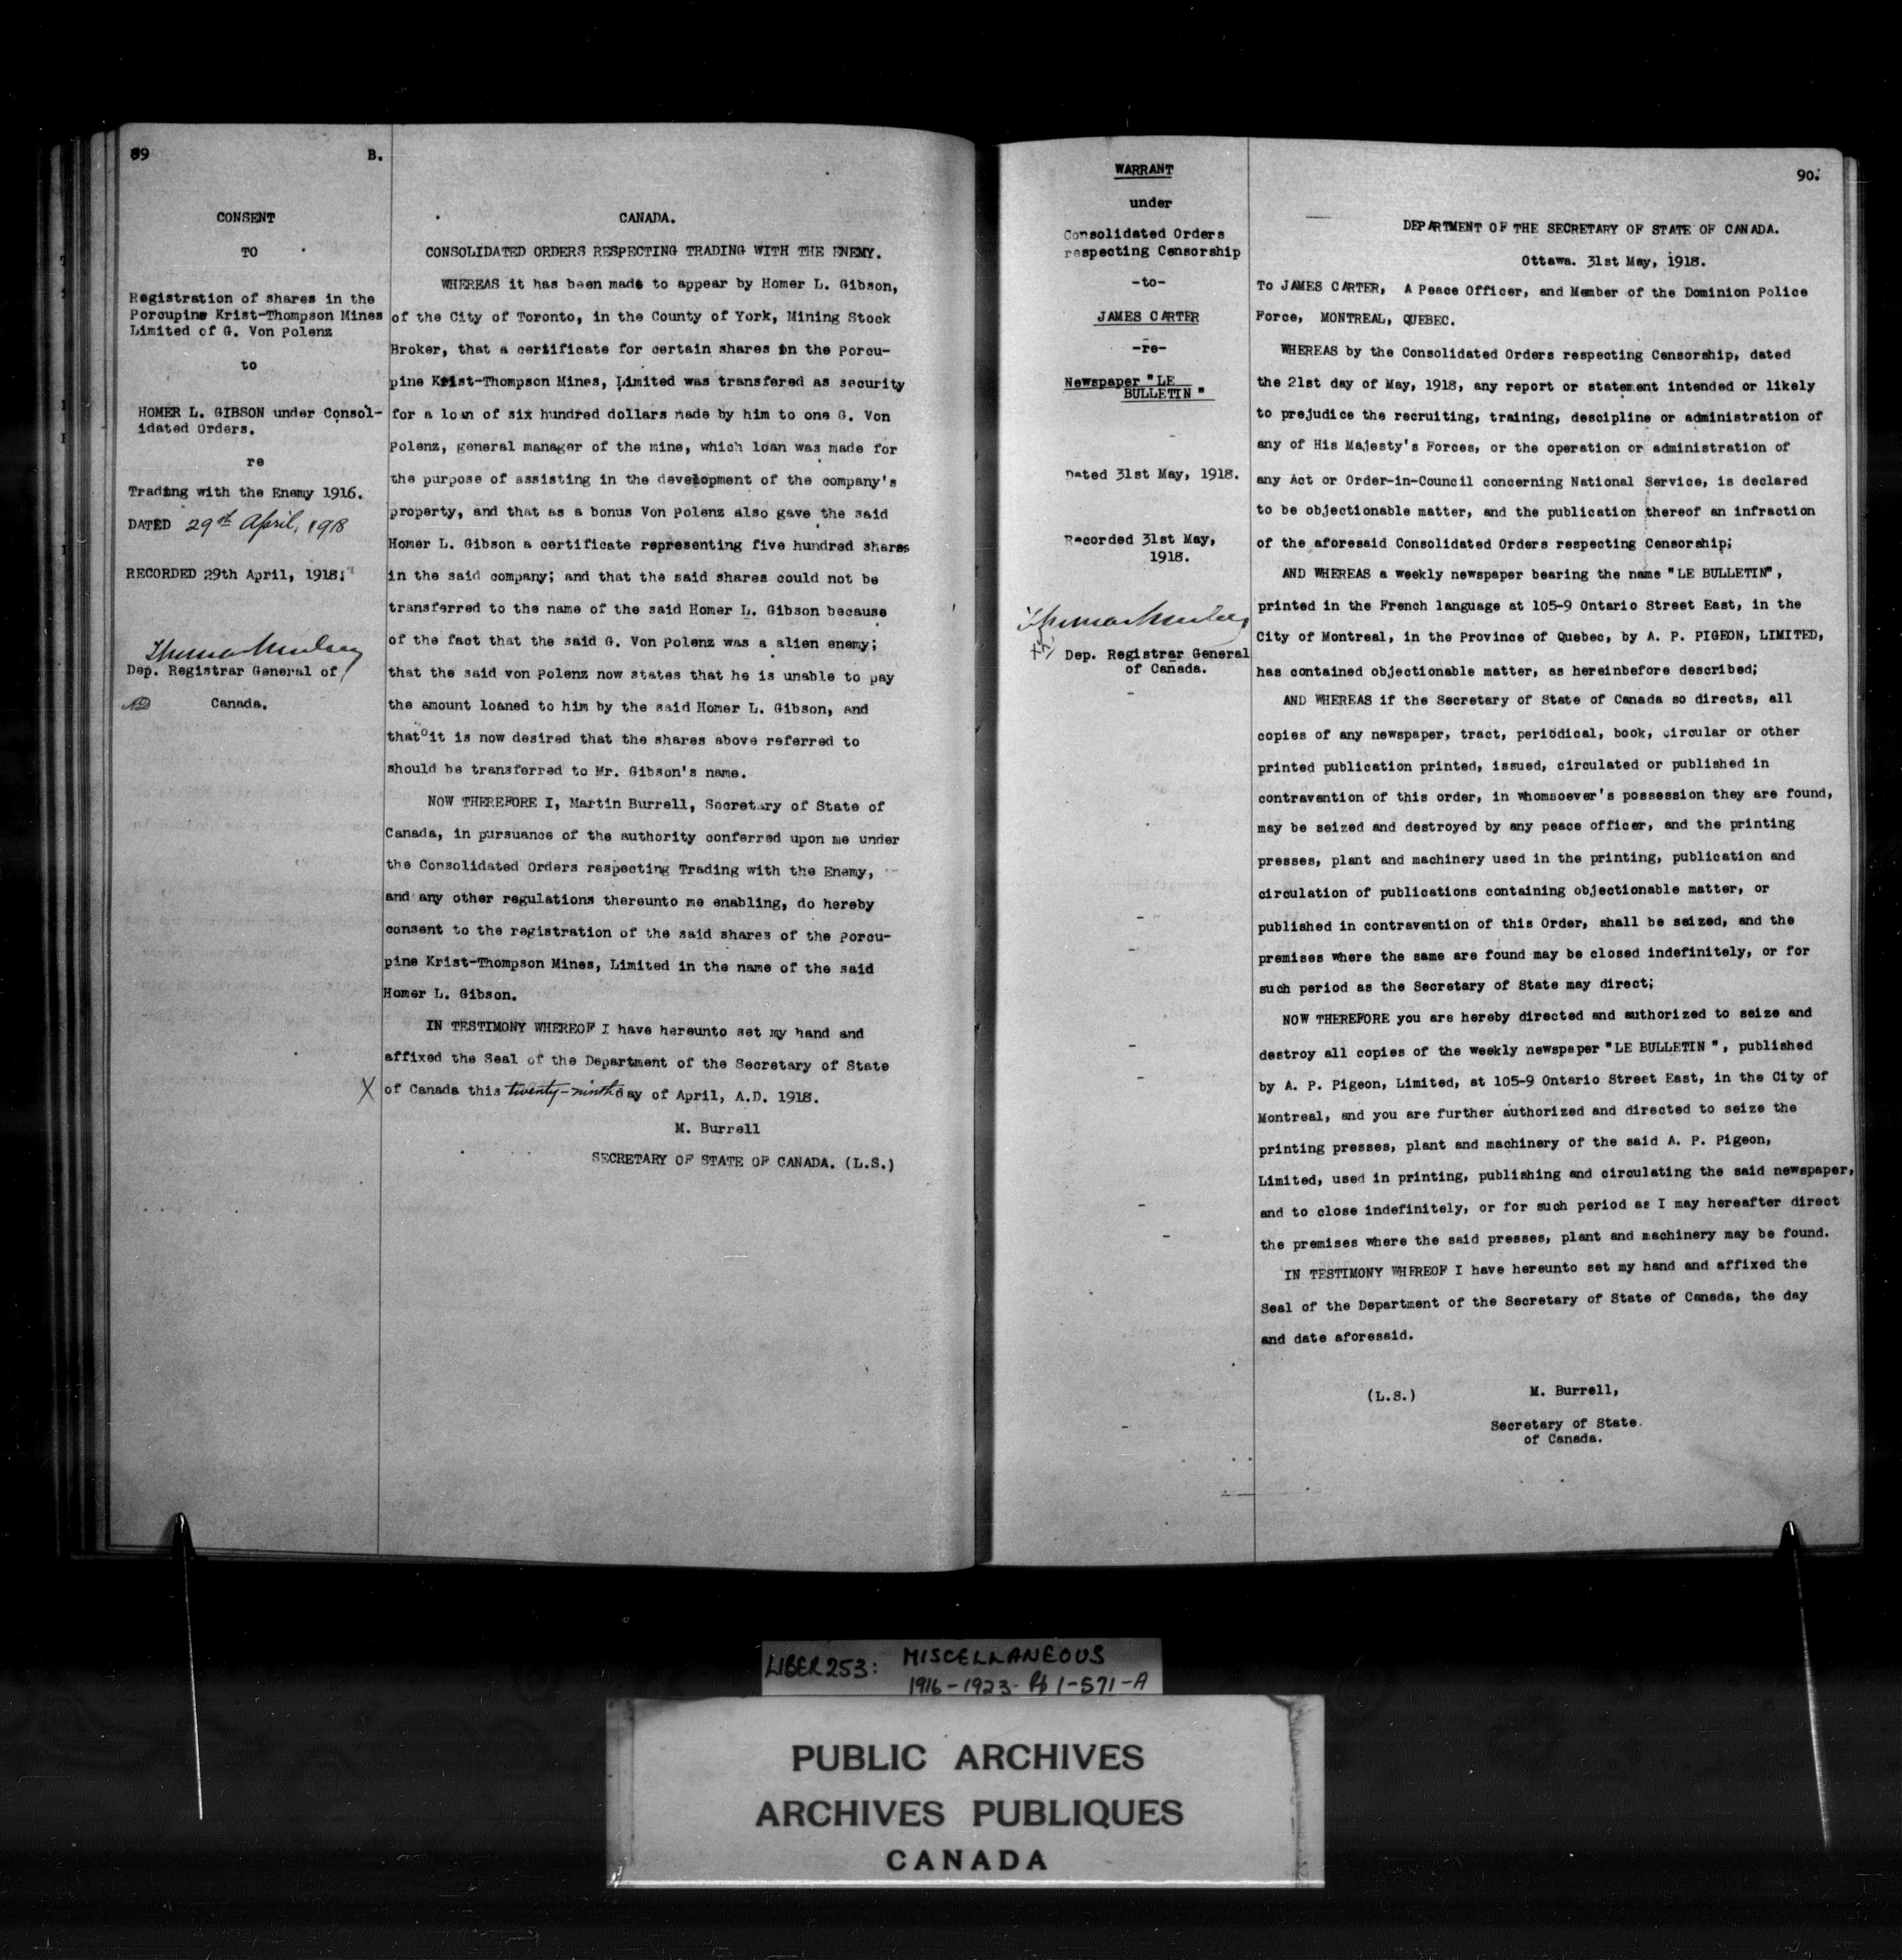 89 B.
CONSENT
TO
Registration of shares in the
Porcupine Krist-Thompson Mines
Limited of G. Von Polenz
to
HOMER L. GIBSON under Consol-
idated Orders.
re
Trading with the Enemy 1916.
DATED 29th April, 1918
RECORDED 29th April, 1918.
Thomas Mulvey
Dep. Registrar General of
Canada.
CANADA.
CONSOLIDATED ORDERS RESPECTING TRADING WITH THE ENEMY.
WHEREAS it has been made to appear by Homer L. Gibson,
of the City of Toronto, in the County of York, Mining Stock
Broker, that a certificate for certain shares in the Porcu-
pine Krist-Thompson Mines, Limited was transfered as security
for a loan of six hundred dollars made by him to one G. Von
Polenz, general manager of the mine, which loan was made for
the purpose of assisting in the development of the company's
property, and that as a bonus Von Polenz also gave the said
Homer L. Gibson a certificate representing five hundred shares
in the said company; and that the said shares could not be
transferred to the name of the said Homer L. Gibson because
of the fact that the said G. Von Polenz was a alien enemy;
that the said von Polenz now states that he is unable to pay
the amount loaned to him by the said Homer L. Gibson, and
that it is now desired that the shares above referred to
should be transferred to Mr. Gibson's name.
NOW THEREFORE I, Martin Burrell, Secretary of State of
Canada, in pursuance of the authority conferred upon me under
the Consolidated Orders respecting Trading with the Enemy,
and any other regulations thereunto me enabling, do hereby
consent to the registration of the said shares of the Porcu-
pine Krist-Thompson Mines, Limited in the name of the said
Homer L. Gibson.
IN TESTIMONY WHEREOF I have hereunto set my hand and
affixed the Seal of the Department of the Secretary of State
X of Canada this twenty-ninth day of April, A.D. 1918.
M. Burrell
SECRETARY OF STATE OF CANADA. (L.S.)
WARRANT
under
Consolidated Orders
respecting Censorship
-to-
JAMES CARTER
-re-
Newspaper "LE
BULLETIN"
Dated 31st May, 1918.
Recorded 31st May,
1918.
Thomas Mulvey
Dep. Registrar General
of Canada.
90.
DEPARTMENT OF THE SECRETARY OF STATE OF CANADA.
Ottawa. 31st May, 1918.
To JAMES CARTER, A Peace Officer, and Member of the Dominion Police
Force, MONTREAL, QUEBEC.
WHEREAS by the Consolidated Orders respecting Censorship, dated
the 21st day of May, 1918, any report or statement intended or likely
to prejudice the recruiting, training, descipline or administration of
any of His Majesty's Forces, or the operation or administration of
any Act or Order-in-Council concerning National Service, is declared
to be objectionable matter, and the publication thereof an infraction
of the aforesaid Consolidated Orders respecting Censorship;
AND WHEREAS a weekly newspaper bearing the name "LE BULLETIN",
printed in the French language at 105-9 Ontario Street East, in the
City of Montreal, in the Province of Quebec, by A. P. PIGEON, LIMITED,
has contained objectionable matter, as hereinbefore described;
AND WHEREAS if the Secretary of State of Canada so directs, all
copies of any newspaper, tract, periodical, book, circular or other
printed publication printed, issued, circulated or published in
contravention of this order, in whomsoever's possession they are found,
may be seized and destroyed by any peace officer, and the printing
presses, plant and machinery used in the printing, publication and
circulation of publications containing objectionable matter, or
published in contravention of this Order, shall be seized, and the
premises where the same are found may be closed indefinitely, or for
such period as the Secretary of State may direct;
NOW THEREFORE you are hereby directed and authorized to seize and
destroy all copies of the weekly newspaper "LE BULLETIN", published
by A. P. Pigeon, Limited, at 105-9 Ontario Street East, in the City of
Montreal, and you are further authorized and directed to seize the
printing presses, plant and machinery of the said A. P. Pigeon,
Limited, used in printing, publishing and circulating the said newspaper,
and to close indefinitely, or for such period as I may hereafter direct
the premises where the said presses, plant and machinery may be found.
IN TESTIMONY WHEREOF I have hereunto set my hand and affixed the
Seal of the Department of the Secretary of State of Canada, the day
and date aforesaid.
(L.S.) M. Burrell,
Secretary of State
of Canada.
LIBER 253: MISCELLANEOUS
1916-1923- Pp 1-571-A
PUBLIC ARCHIVES
ARCHIVES PUBLIQUES
CANADA